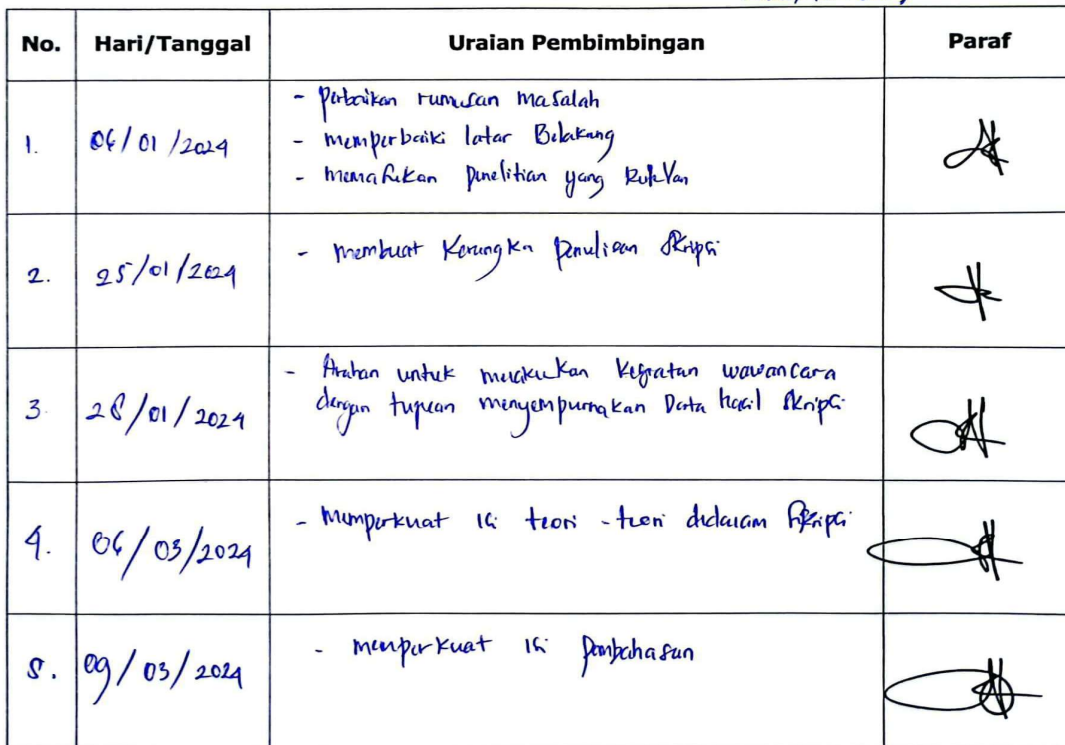 No. Hari/Tanggal Uraian Pembimbingan Paraf
1. 06/01/2024
- Perbaikan rumusan masalah
- memperbaiki latar Belakang
- memasukan penelitian yang
2. 25/01/2024
- membuat Kerangka penulisan Skripsi
3. 28/01/2024
- Arahan untuk melakukan Kegiatan wawancara
dengan tujuan menyempurnakan Data hasil Skripsi
4. 06/03/2024
- memperkuat isi teori - teori didalam Skripsi
5. 09/03/2024
- memperkuat isi pembahasan